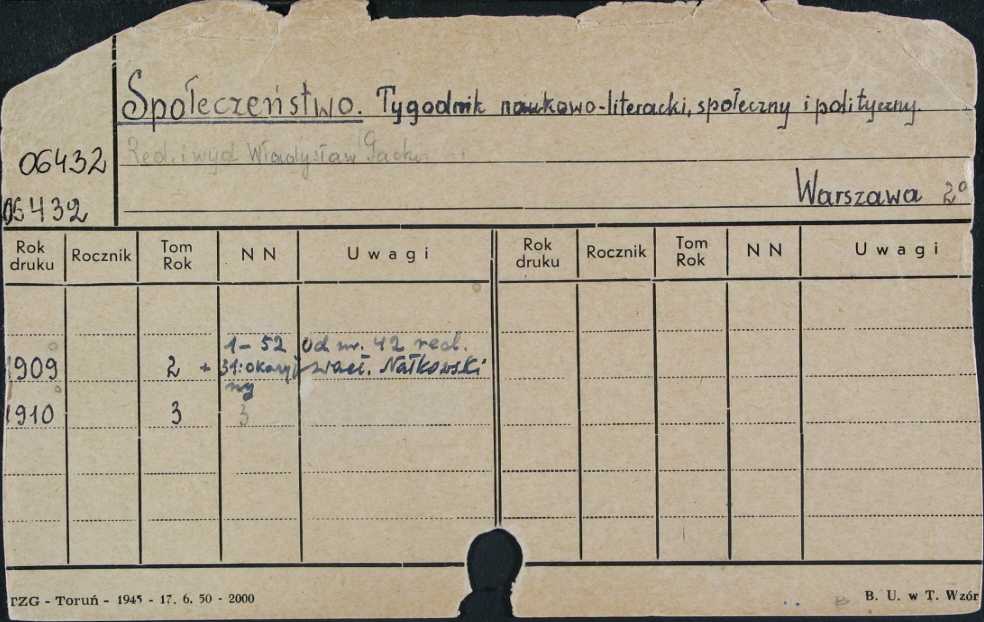 Społeczeństwo. Tygodnik naukowo-literacki, społeczny i polityczny.
Red. i wyd. Władysław
06432
Warszawa 2°
06432
Rok druku Rocznik Tom Rok NN Uwagi Rok druku Rocznik Tom Rok NN Uwagi
1-52 Od nr. 42 red.
1909 2 + 31: okazyj wacł. Nałkowski
ny
1910 3 3
TZG - Toruń - 1945 - 17. 6. 50 - 2000 B. U. w T. Wzór